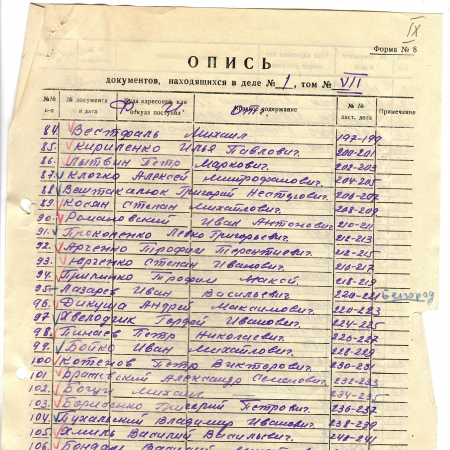 IX
Форма № 8
ОПИСЬ
документов, находящихся в деле № 1, том № VII
№№ п-п № документа и дата Куда адресован или откуда поступил Краткое содержание №№ лист. дела Примечание
Ф. И. Отч.
84. Вестфаль Михаил 197-199
85. Кириленко Илья Павлович. 200-201
86. Лытвин Петр Маркович. 202-203
87. Клочко Алексей Митрофанович. 204-205
88. Войтакалюк Григорий Нестерович. 206-207
89. Косян Степан Михайлович. 208-209
90. Романовский Иван Антонович 210-211
91. Прокопенко Левко Григорьевич. 212-213
92. Ярченко Трофим Терентиевич. 212-215
93. Юрченко Степан Иванович. 216-217
94. Трофим 218-219
95. Лазарев Иван Васильевич. 220-221 Белгород
96. Дикуша Андрей Максимович. 222-223
97. Гордей Иванович. 224-225
98. Пинаев Петр Николаевич 226-227
99. Бойко Иван Михайлович. 228-229
100. Котенов Петр Викторович. 230-231
101. Александр Семенович. 232-233
102. Михаил 234-235
103. Борисенко Григорий Петрович. 236-237
104. Пухальский Владимир Иванович. 238-239
105. Хмиль Василий Васильевич. 240-241
106. Бондарь Василий